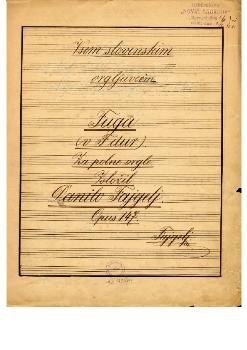 Vsem slovenskim
orgljavcem.
Fuga
(v F dur)
Za polne orgle
Zložil
Danilo Fajgelj.
Opus 147.
Fajgelj